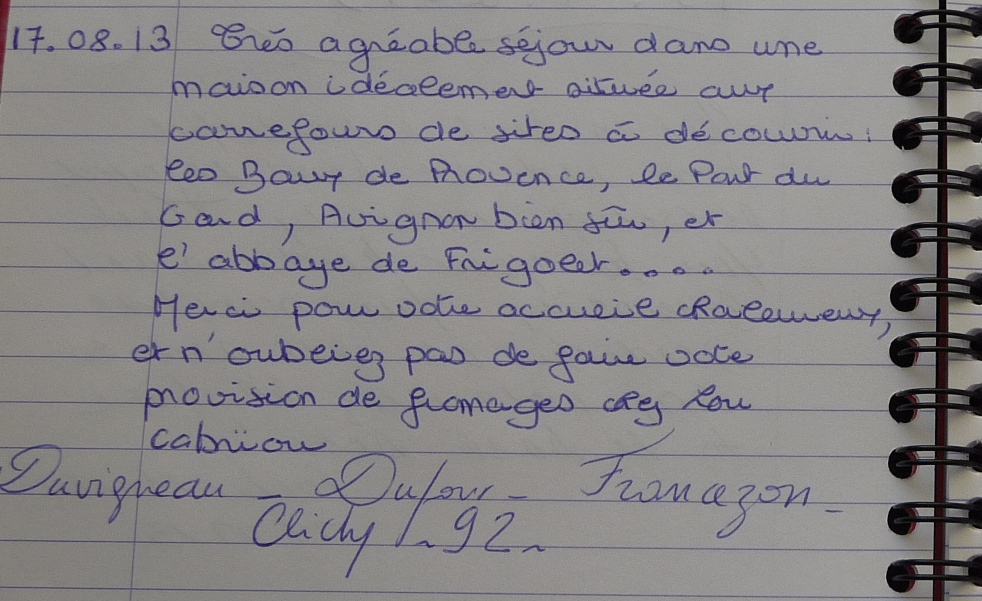 17.08.13 Très agréable séjour dans une
maison idéalement située aux
carrefours de sites à découvrir :
les Baux de Provence, le Pont du
Gard, Avignon bien sûr, et
l'abbaye de Frigolet....
Merci pour votre accueil chaleureux,
et n'oubliez pas de faire votre
provision de fromages chez lou
cabriou
Duvigneau - Dufour - Framezon -
Clichy /. 92.